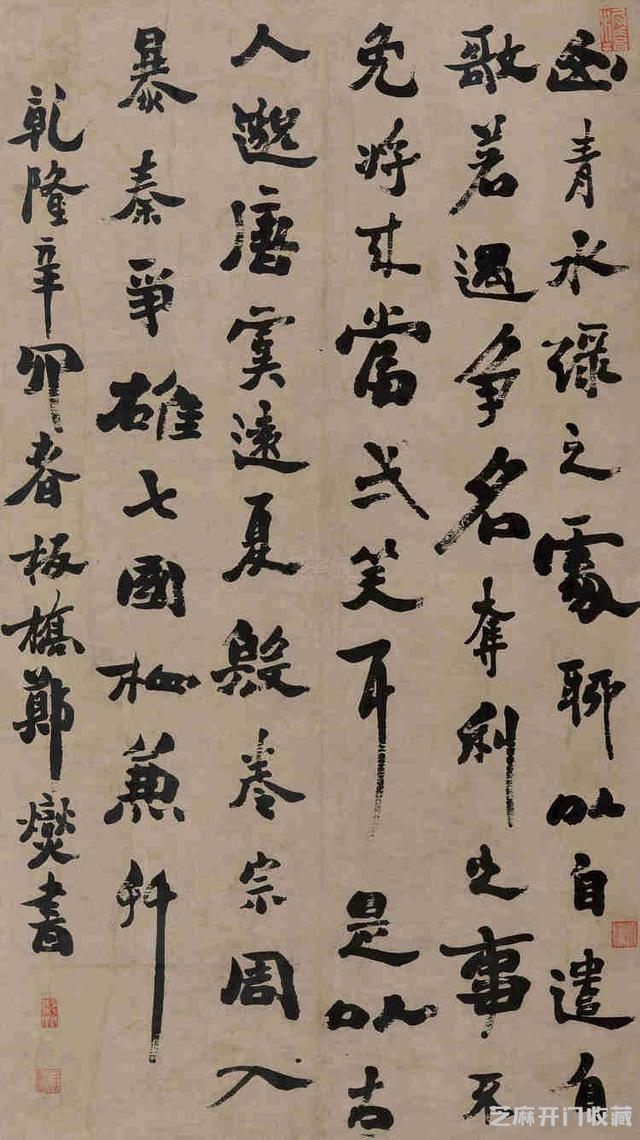 山青水绿之處聊以自遣自
歌若遇争名奪利之事不
免將來當笑耳 是以古
人邈唐虞遠夏殷卷宗周入
暴秦爭雄七國相兼并
乾隆辛卯春板橋鄭燮書
芝麻开门收藏